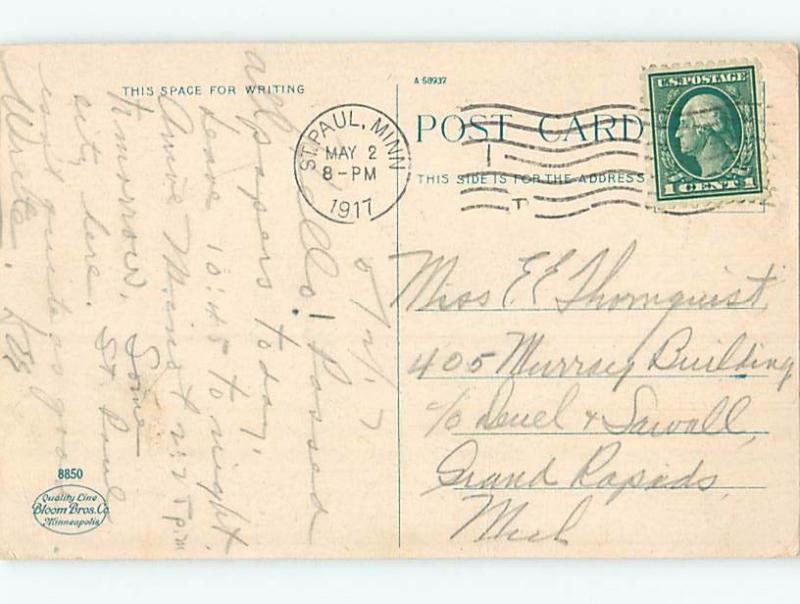 THIS SPACE FOR WRITING
A 58937
POST CARD
THIS SIDE IS FOR THE ADDRESS
U.S. POSTAGE
1 CENT 1
ST. PAUL, MINN
MAY 2
8-PM
1917
5/2/17
Hello! Passed
all papers today.
Leave 10:45 tonight
Arrive Minot 5 p.m
tomorrow. Some
city here. St. Paul
not quite as good
Write.
Miss E E Thornquist
405 Murray Building
c/o Deuel & Sawall
Grand Rapids
Mich
8850
Quality Line
Bloom Bros. Co
Minneapolis